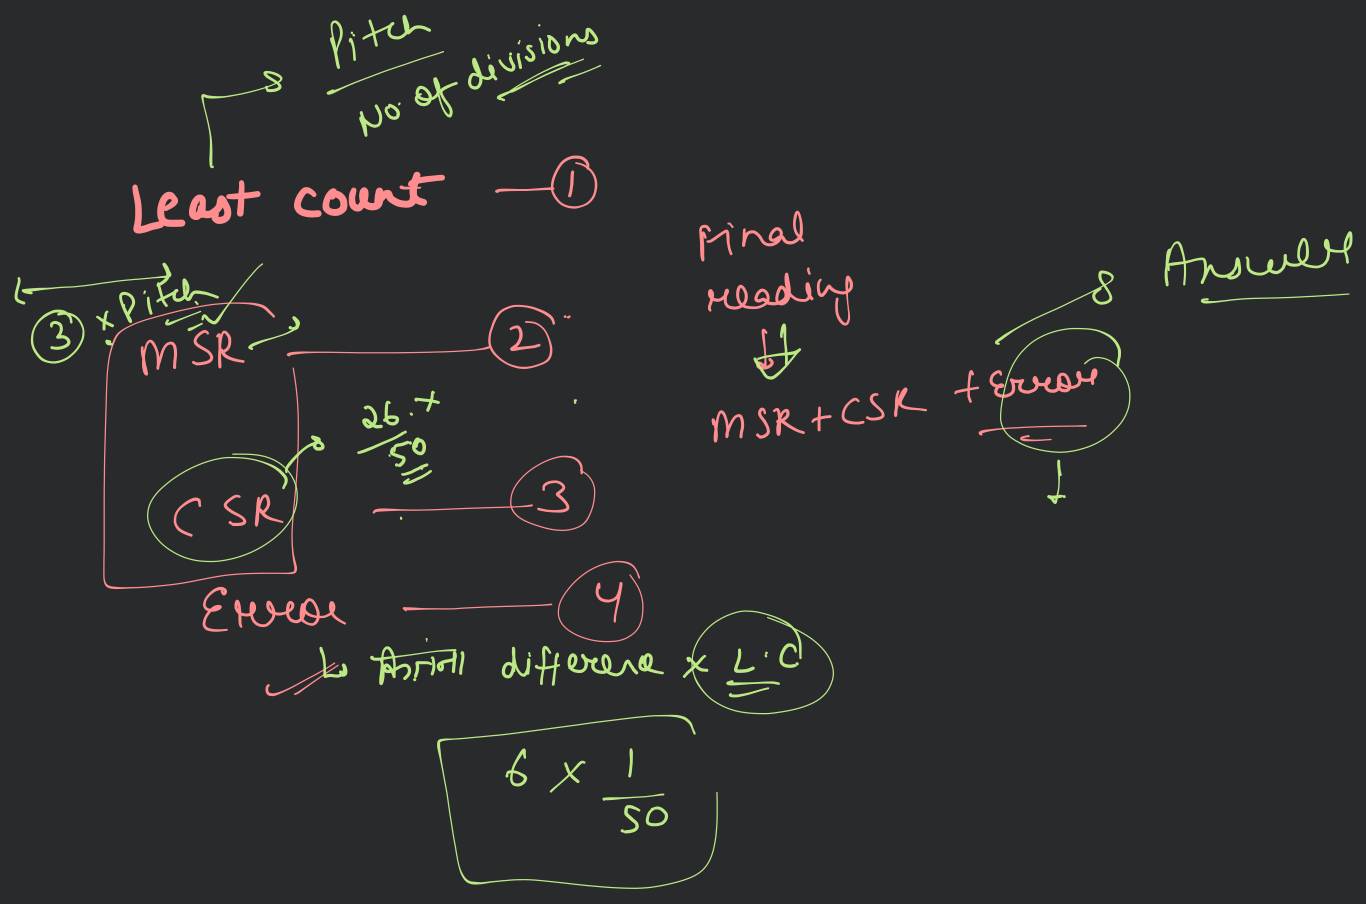 Pitch
No. of divisions
Least count — 1
3 × Pitch
MSR — 2
26. ×
50
CSR — 3
Error — 4
difference × L.C
6 × 1
50
Final
reading
MSR + CSR + Error
Answer